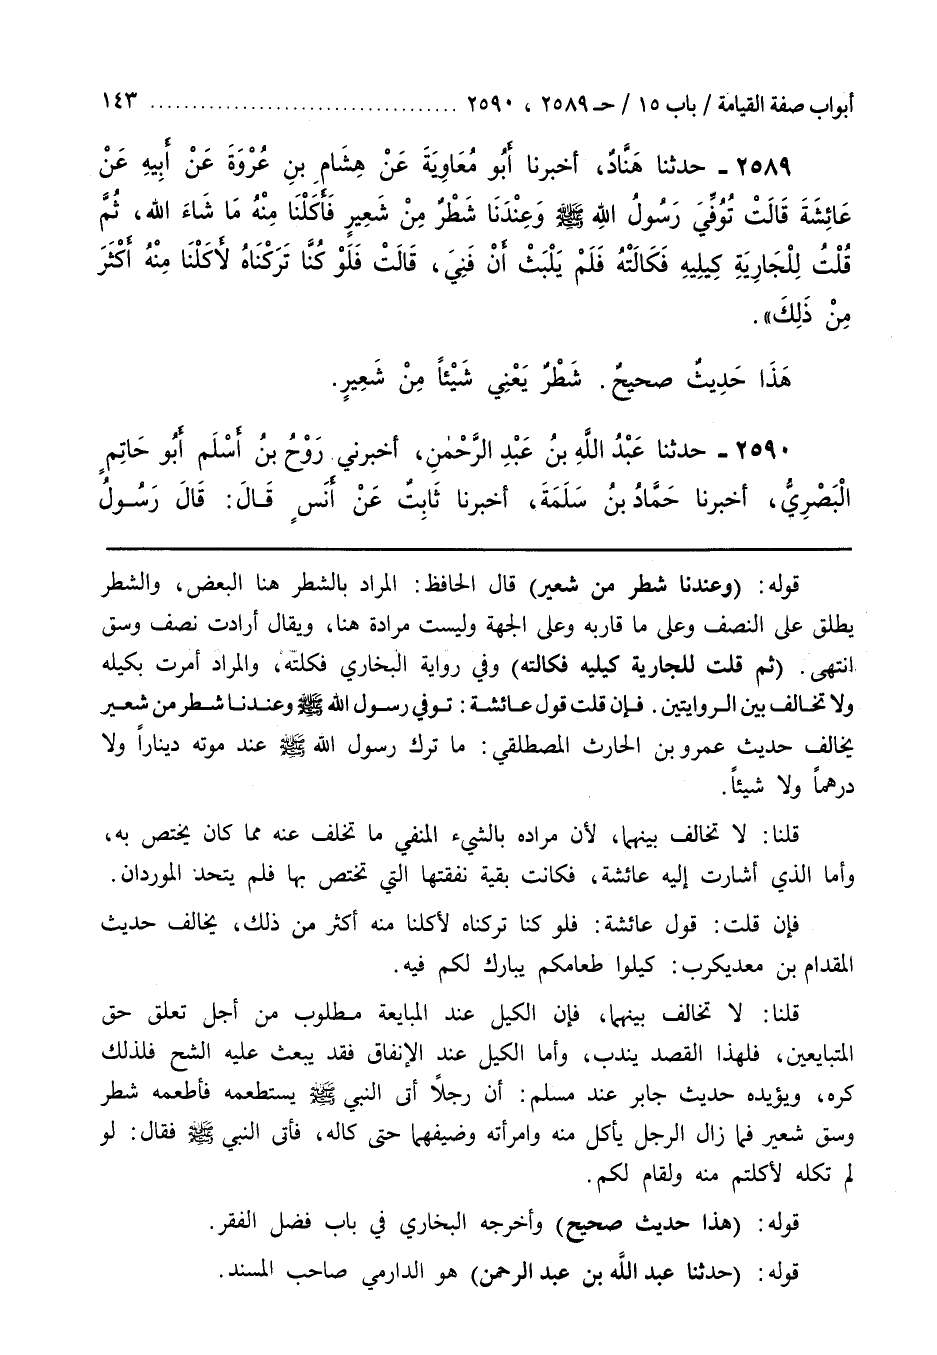 أبواب صفة القيامة / باب ١٥ / حـ ٢٥٨٩ ، ٢٥٩٠ .................................... ١٤٣
٢٥٨٩ ـ حدثنا هَنَّادٌ، أخبرنا أَبُو مُعَاوِيَةَ عَنْ هِشَامِ بنِ عُرْوَةَ عَنْ أَبِيهِ عَنْ
عَائِشَةَ قَالَتْ تُوُفِّيَ رَسُولُ اللهِ ﷺ وَعِنْدَنَا شَطْرٌ مِنْ شَعِيرٍ فَأَكَلْنَا مِنْهُ مَا شَاءَ الله، ثُمَّ
قُلْتُ لِلْجَارِيَةِ كِيلِيهِ فَكَالَتْهُ فَلَمْ يَلْبَثْ أَنْ فَنِيَ، قَالَتْ فَلَوْ كُنَّا تَرَكْنَاهُ لأَكَلْنَا مِنْهُ أَكْثَرَ
مِنْ ذَلِكَ».
هَذَا حَدِيثٌ صحيحٌ. شَطْرٌ يَعْنِي شَيْئاً مِنْ شَعِيرٍ.
٢٥٩٠ ـ حدثنا عَبْدُ اللَّهِ بنُ عَبْدِ الرَّحْمٰنِ، أخبرني رَوْحُ بنُ أَسْلَم أَبُو حَاتِمٍ
الْبَصْرِيُّ، أخبرنا حَمَّادُ بنُ سَلَمَةَ، أخبرنا ثَابِتٌ عَنْ أَنَسٍ قَالَ: قَالَ رَسُولُ
قوله: (وعندنا شطر من شعير) قال الحافظ: المراد بالشطر هنا البعض، والشطر
يطلق على النصف وعلى ما قاربه وعلى الجهة وليست مرادة هنا، ويقال أرادت نصف وسق
انتهى. (ثم قلت للجارية كيليه فكالته) وفي رواية البخاري فكلته، والمراد أمرت بكيله
ولا تخالف بين الروايتين. فإن قلت قول عائشة: توفي رسول الله ﷺ وعندنا شطر من شعير
يخالف حديث عمرو بن الحارث المصطلقي: ما ترك رسول الله ﷺ عند موته ديناراً ولا
درهماً ولا شيئاً.
قلنا: لا تخالف بينهما، لأن مراده بالشيء المنفي ما تخلف عنه مما كان يختص به،
وأما الذي أشارت إليه عائشة، فكانت بقية نفقتها التي تختص بها فلم يتحد الموردان.
فإن قلت: قول عائشة: فلو كنا تركناه لأكلنا منه أكثر من ذلك، يخالف حديث
المقدام بن معديكرب: كيلوا طعامكم يبارك لكم فيه.
قلنا: لا تخالف بينهما، فإن الكيل عند المبايعة مطلوب من أجل تعلق حق
المتبايعين، فلهذا القصد يندب، وأما الكيل عند الإنفاق فقد يبعث عليه الشح فلذلك
كره، ويؤيده حديث جابر عند مسلم: أن رجلاً أتى النبي ﷺ يستطعمه فأطعمه شطر
وسق شعير فما زال الرجل يأكل منه وامرأته وضيفهما حتى كاله، فأتى النبي ﷺ فقال: لو
لم تكله لأكلتم منه ولقام لكم.
قوله: (هذا حديث صحيح) وأخرجه البخاري في باب فضل الفقر.
قوله: (حدثنا عبد اللَّه بن عبد الرحمن) هو الدارمي صاحب المسند.